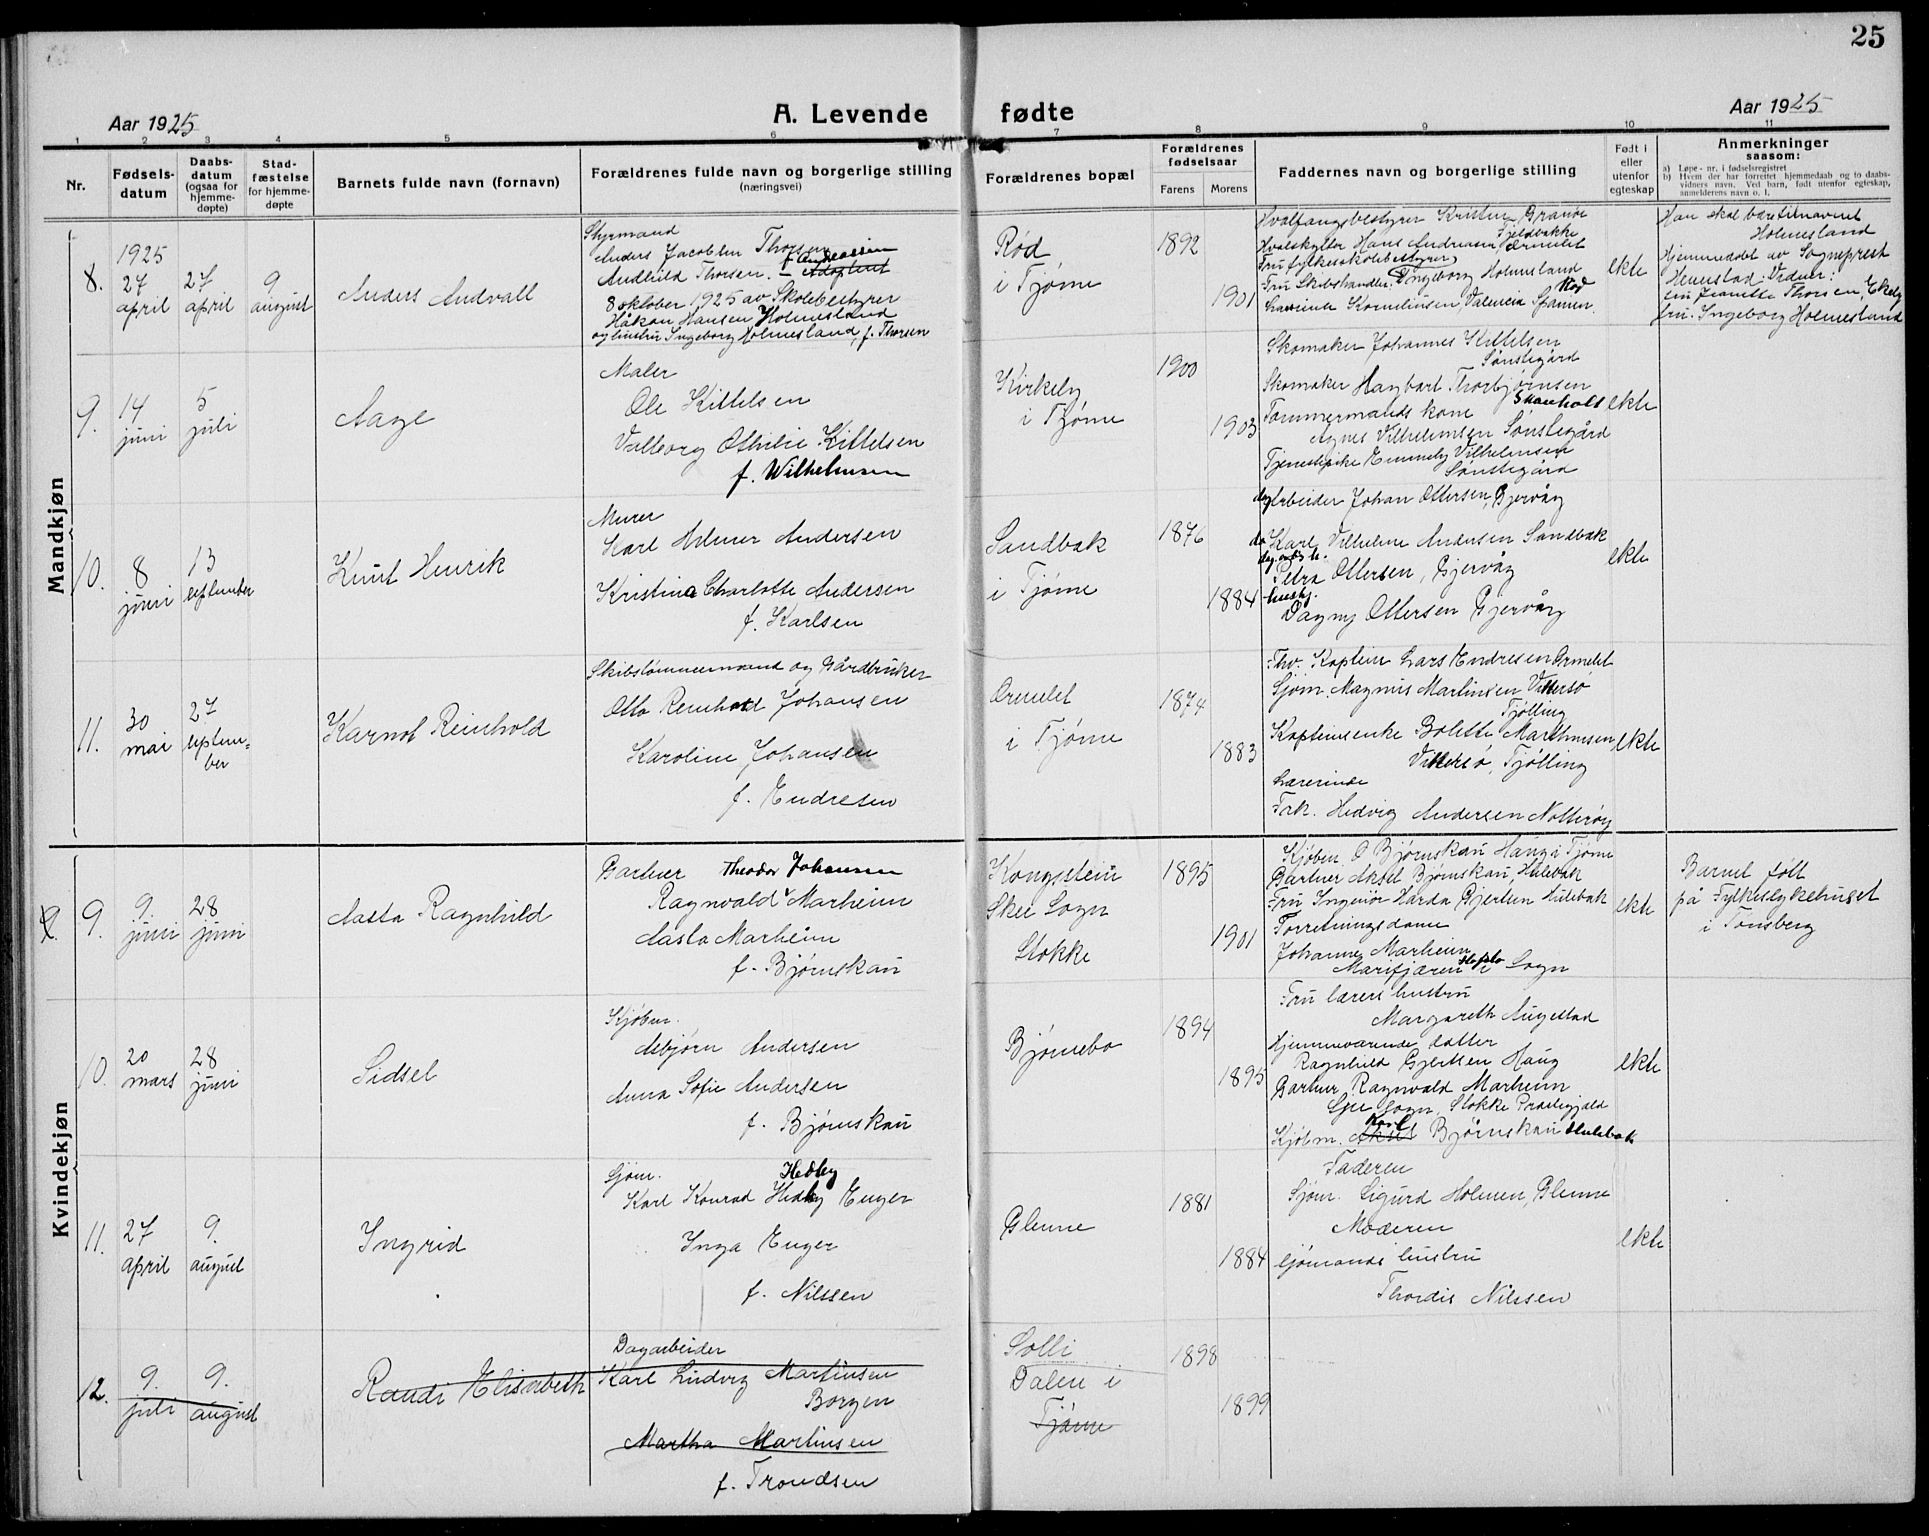 25
Aar 1925
A. Levende fødte
Aar 1925
1 2 3 4 5 6 7 8 9 10 11
Nr.
Fødsels-
datum
Daabs-
datum
(ogsaa for
hjemme-
døpte)
Stad-
fæstelse
for hjemme-
døpte
Barnets fulde navn (fornavn)
Forældrenes fulde navn og borgerlige stilling
(næringsvei)
Forældrenes bopæl
Forældrenes
fødselsaar
Farens
Morens
Faddernes navn og borgerlige stilling
Født i
eller
utenfor
egteskap
Anmerkninger
saasom:
a) Løpe-nr. i fødselsregistret
b) Hvem der har forrettet hjemmedaab og to daabs-
vidners navn. Ved barn, født utenfor egteskap,
anmelderens navn o. l.
Mandkjøn
1925
8.
27
april
27
april
9
august
Anders Andvall
Styrmand
Anders Jacobsen Thorsen
f. Andreassen
Andhild Thorsen. – Adoptert
8 oktober 1925 av Skolebestyrer
Håkon Hansen Holmesland
og hustru Ingeborg Holmesland, f. Thorsen
Rød
i Tjøme
1892
1901
Hvalfangstbestyrer Kristen Granøe
Fjeldbakke
Hvalskytter Hans Andreasen, Ormelet
Fru fylkesskolebestyrer
Fru Skibshandler Ingeborg Holmesland
Rød
Lovinde Korneliusen, Valencia Spanien
ekte
Han skal bære tilnavnet
Holmesland
Hjemmedøbt av Sogneprest
Henestad. Vidner:
fru Jeanette Thorsen, Ekely
fru Ingeborg Holmesland
9.
14
juni
5
juli
Aage
Maler
Ole Kittelsen
Valborg Othilie Kittelsen
f. Wilhelmsen
Kirkeby
i Tjøme
1900
1903
Skomaker Johannes Kittelsen
Sønstegård
Skomaker Hagbart Thorbjørnsen
Skauholt
Tømmermands kone
Agnes Vilhelmsen Sønstegård
Tjenestepike Emmely Vilhelmsen
Sønstegård
ekte
10.
8
juni
13
september
Knut Henrik
Murer
Karl Hilmer Andersen
Kristine Charlotte Andersen
f. Karlsen
Sandbæk
i Tjøme
1876
1884
dagarbeider Johan Ottersen, Gjervåg
do Karl Vilhelm Andersen Sandbæk
dag.arb. h.
Petra Ottersen, Gjervåg
hushj.
Dagny Ottersen Gjervåg
ekte
11.
30
mai
27
septem=
ber
Karnot Reinhold
Skibstømmermand og Gårdbruker
Otto Reinhold Johansen
Karoline Johansen
f. Endresen
Ormelet
i Tjøme
1874
1883
Fhv. Kaptein Lars Endresen Ormelet
Sjøm. Magnus Martinsen Vittersø
Tjølling
Kapteinsenke Bolette Marthinsen,
Vittersø, Tjølling
Lærerinde
Frk. Hedvig Andersen Nøtterøy
ekte
Kvindekjøn
9.
9
juni
28
juni
Aasta Ragnhild
Gartner Theodor Johannes
Ragnvald Marheim
Aasta Marheim
f. Bjørnskau
Kongsstein
Skee Sogn
Stokke
1895
1901
Kjøbm. O. Bjørnskau Haug i Tjøme
Gartner Aksel Bjørnskau, Hulebak
Fru Ingeniør Harda Gjertsen Hulebak
Forretningsdame
Johanne Marheim
Marifjæren Hafslo i Sogn
ekte
Barnet født
på Fylkessykehuset
i Tønsberg
10.
20
mars
28
juni
Sidsel
Kjøbm.
Asbjørn Andersen
Anna Sofie Andersen
f. Bjørnskau
Bjørnebo
1894
1895
Fru lærers hustru
Margareth Augestad
Hjemmeværende datter
Ragnhild Gjertsen Haug
Gartner Ragnvald Marheim
Skee sogn, Stokke Prestegjæld
Karl
Kjøbm. Aksel Bjørnskau Hulebak
ekte
11.
27
april
9.
august
Ingrid
Sjøm. Hedley
Karl Konrad Hedley Enger
Inga Enger
f. Nilssen
Glenne
1881
1884
Faderen
Sjøm. Sigurd Holmen, Glenne
Moderen
Sjømands hustru
Thordis Nilssen
ekte
12.
9.
juli
9.
august
Randi Elisabeth
Dagarbeider
Karl Ludvig Martinsen
Borgen
Martha Martinsen
f. Trondsen
Solli
Dalen i
Tjøme
1898
1899